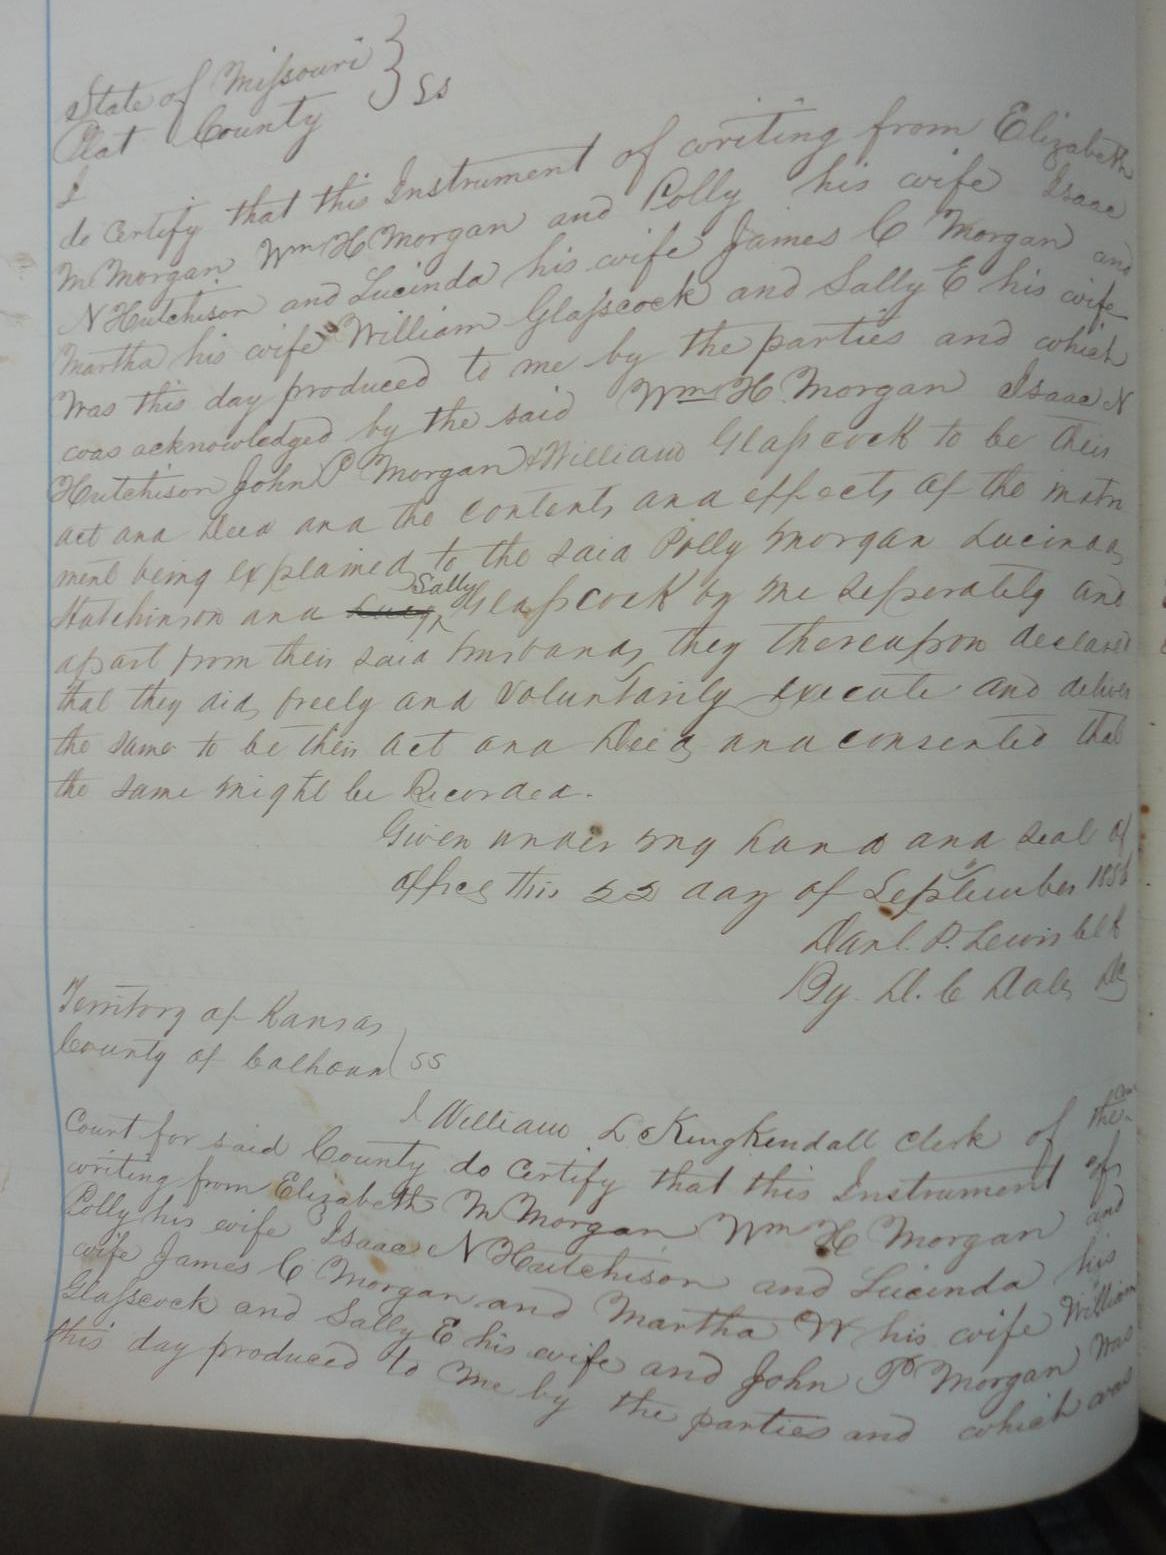 State of Missouri } ss
Plat County
I
do certify that this Instrument of writing from Elizabeth
M Morgan Wm H Morgan and Polly his wife Isaac
N Hutchison and Lucinda his wife James C Morgan and
Martha his wife William Glasscock and Sally E his wife
Was this day produced to me by the parties and which
was acknowledged by the said Wm H Morgan Isaac N
Hutchison John P Morgan & William Glasscock to be their
act and Deed and the contents and effects of the instru
ment being explained to the said Polly Morgan Lucinda
Hutchinson and Sally Glasscock by me seperately and
apart from their said husbands they thereupon declared
that they did freely and voluntarily execute and deliver
the same to be their act and Deed and consented that
the same might be Recorded.
Given under my hand and seal of
office this 22 day of September
Danl. P. Lewis Clk
By D. C Dale DC
Territory of Kansas
County of Calhoun ( ss
I William L Kuykendall Clerk of the
Court for said County do certify that this Instrument of
writing from Elizabeth M Morgan Wm H Morgan and
Polly his wife Isaac N Hutchison and Lucinda his
wife James C Morgan and Martha W his wife William
Glasscock and Sally E his wife and John P Morgan was
this day produced to me by the parties and which was